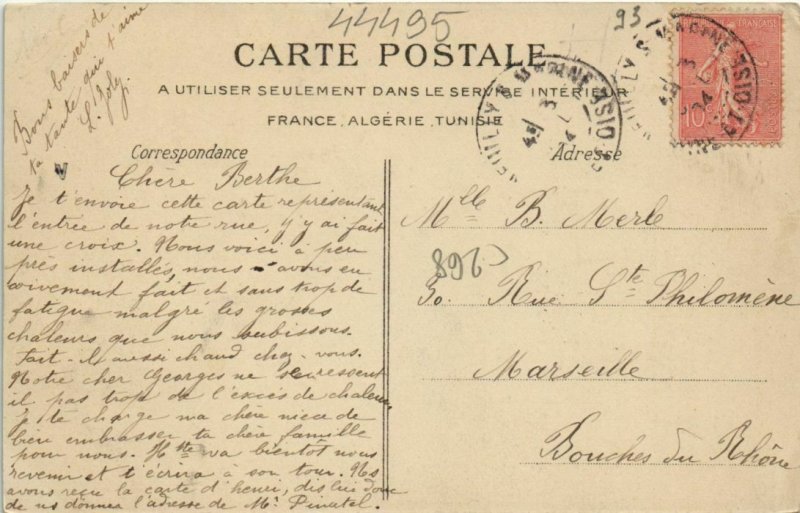 44495
93
CARTE POSTALE
A UTILISER SEULEMENT DANS LE SERVICE INTÉRIEUR
FRANCE, ALGÉRIE, TUNISIE
Correspondance
Adresse
Bons baisers de
ta tante qui t'aime
Chère Berthe
Je t'envoie cette carte représentant
l'entrée de notre rue, j'y ai fait
une croix. Nous voici à peu
près installés, nous avons en
fait et sans trop de
fatigue malgré les grosses
chaleurs que nous subissons.
Fait-il aussi chaud chez-vous.
Notre cher Georges ne se ressent
il pas trop de l'excès de chaleur
je te charge ma chère nièce de
bien embrasser ta chère famille
pour nous. va bientôt nous
revenir et t'écrira à son tour. Ns
avons reçu la carte d'henri, dis lui donc
de ns donner l'adresse de Mr Pinatel.
Mlle B. Merle
8963
30. Rue Ste Philomène
Marseille
Bouches du Rhône
FRANÇAISE
10
OISE